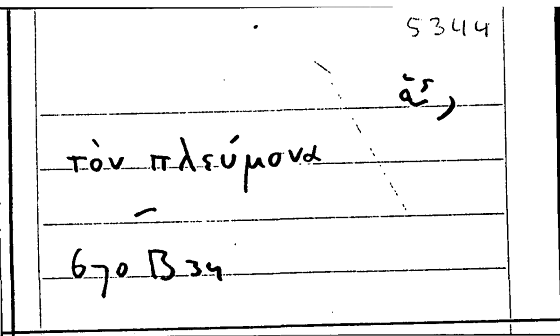 5344
τὸν πλεύμονα
670 B 34